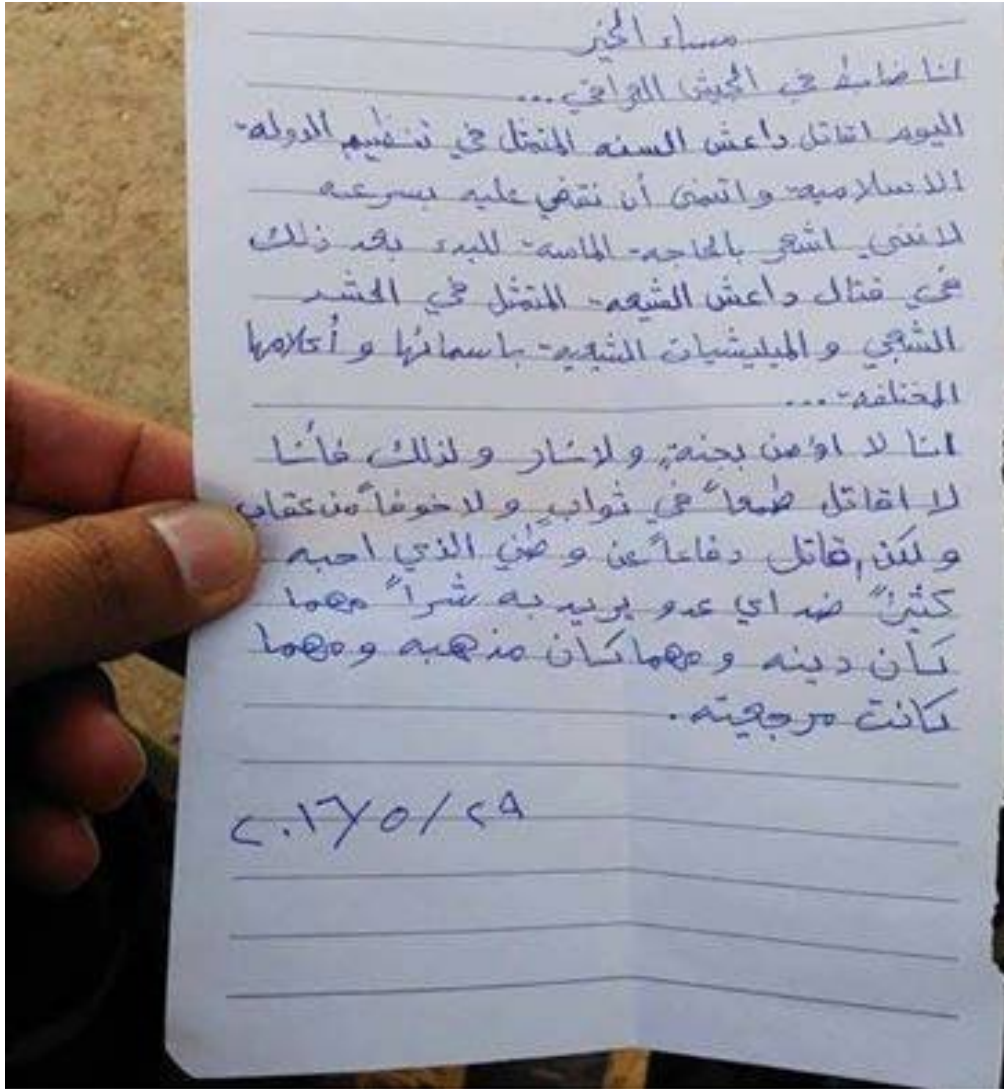 مساء الخير
انا ضابط في الجيش العراقي...
اليوم اقاتل داعش السنه المتمثل في تنظيم الدولة
الاسلامية واتمنى أن نقضي عليه بسرعه
لانني اشعر بالحاجة الماسة للبدء بعد ذلك
في قتال داعش الشيعة المتمثل في الحشد
الشعبي و الميليشيات الشيعية باسمائها و أعلامها
المختلفة...
انا لا اؤمن بجنةٍ ولا نار و لذلك فأنا
لا اقاتل طمعاً في ثوابٍ و لا خوفاً من عقاب
و لكن اقاتل دفاعاً عن وطني الذي احبه
كثيراً ضد اي عدو يريد به شراً مهما
كان دينه و مهما كان مذهبه و مهما
كانت مرجعيته.
٢٠١٦/٥/٢٩